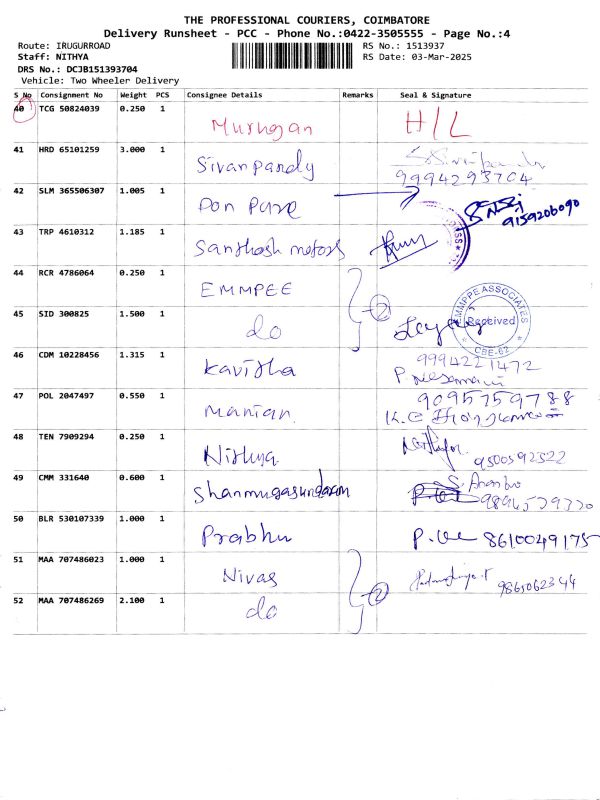 THE PROFESSIONAL COURIERS, COIMBATORE
Delivery Runsheet - PCC - Phone No.:0422-3505555 - Page No.:4
Route: IRUGURROAD RS No.: 1513937
Staff: NITHYA RS Date: 03-Mar-2025
DRS No.: DCJB151393704
Vehicle: Two Wheeler Delivery
S No Consignment No Weight PCS Consignee Details Remarks Seal & Signature
40 TCG 50824039 0.250 1 Murugan H/L
41 HRD 65101259 3.000 1 Sivanpandy
9994293704
42 SLM 365506307 1.005 1 Pon Pure
9159206090
43 TRP 4610312 1.185 1 Santhosh motors
44 RCR 4786064 0.250 1 EMMPEE 2
EMMPPE ASSOCIATES
Received
CBE-62
45 SID 300825 1.500 1 do
46 CDM 10228456 1.315 1 Kavitha 9994221472
47 POL 2047497 0.550 1 Manian 9095759788
48 TEN 7909294 0.250 1 Nithya 9500592322
49 CMM 331640 0.600 1 Shanmugasundaram
9894529330
50 BLR 530107339 1.000 1 Prabhu 8610049175
51 MAA 707486023 1.000 1 Nivas 2 9865062344
52 MAA 707486269 2.100 1 do